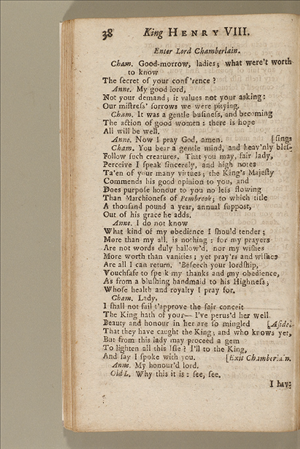 38 King HENRY VIII.
Enter Lord Chamberlain.
Cham. Good-morrow, ladies; what were't worth
to know
The secret of your conf'rence?
Anne. My good lord,
Not your demand; it values not your asking:
Our mistress' sorrows we were pitying.
Cham. It was a gentle business, and becoming
The action of good women: there is hope
All will be well.
Anne. Now I pray God, amen.
Cham. You bear a gentle mind, and heav'nly bles-
[sings
Follow such creatures. That you may, fair lady,
Perceive I speak sincerely, and high notes
Ta'en of your many virtues; the King's Majesty
Commends his good opinion to you, and
Does purpose honour to you no less flowing
Than Marchioness of Pembrook; to which title
A thousand pound a year, annual support,
Out of his grace he adds.
Anne. I do not know
What kind of my obedience I should tender;
More than my all, is nothing: for my prayers
Are not words duly hallow'd, nor my wishes
More worth than vanities; yet pray'rs and wishes
Are all I can return. 'Beseech your lordship,
Vouchsafe to speak my thanks and my obedience,
As from a blushing handmaid to his Highness;
Whose health and royalty I pray for.
Cham. Lady,
I shall not fail t'approve the fair conceit
The King hath of you— I've perus'd her well
Beauty and honour in her are so mingled [Aside.
That they have caught the King; and who knows yet,
But from this lady may proceed a gem
To lighten all this Isle? I'll to the King,
And say I spoke with you. [Exit Chamberlain.
Anne. My honour'd lord.
Old L. Why this it is: see, see.
I have